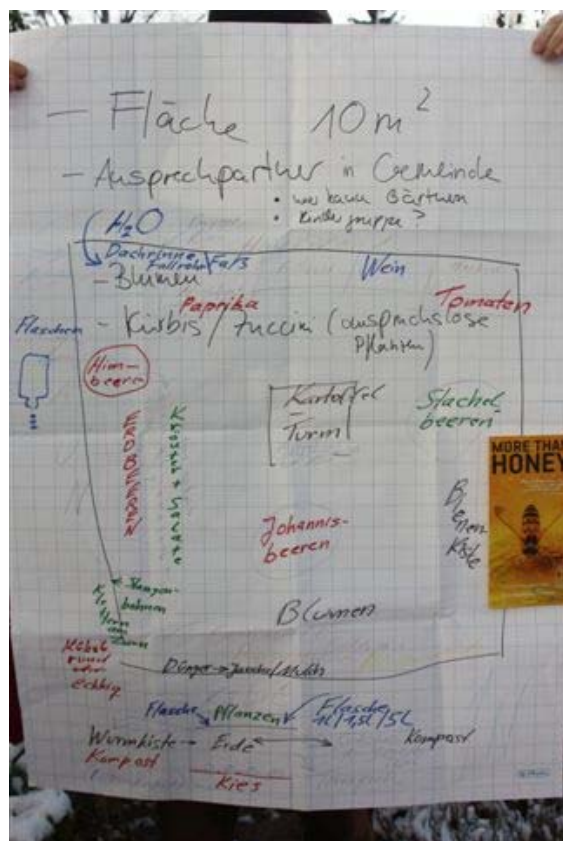 - Fläche 10 m²
- Ansprechpartner in Gemeinde
• wer kann Gärtnern
• Kindergruppe?
H₂O
Dachrinne
Fallrohr/Faß
- Blumen
Wein
Paprika
Tomaten
Flaschen
- Kürbis / Zuccini (anspruchslose
Pflanzen)
Him-
beeren
Kartoffel
Turm
Stachel-
beeren
ERDBEEREN
MORE THAN
HONEY
Bienen
Kiste
Johannis-
beeren
Stangen-
bohnen
Klettern am Zaun
Blumen
Kübel
rund
oder
eckig
Dünger → Jauche/Mulch
Flasche
Pflanzen
Flasche
1L/1,5L/5L
Wurmkiste → Erde
Kompost
Kompost
Kies